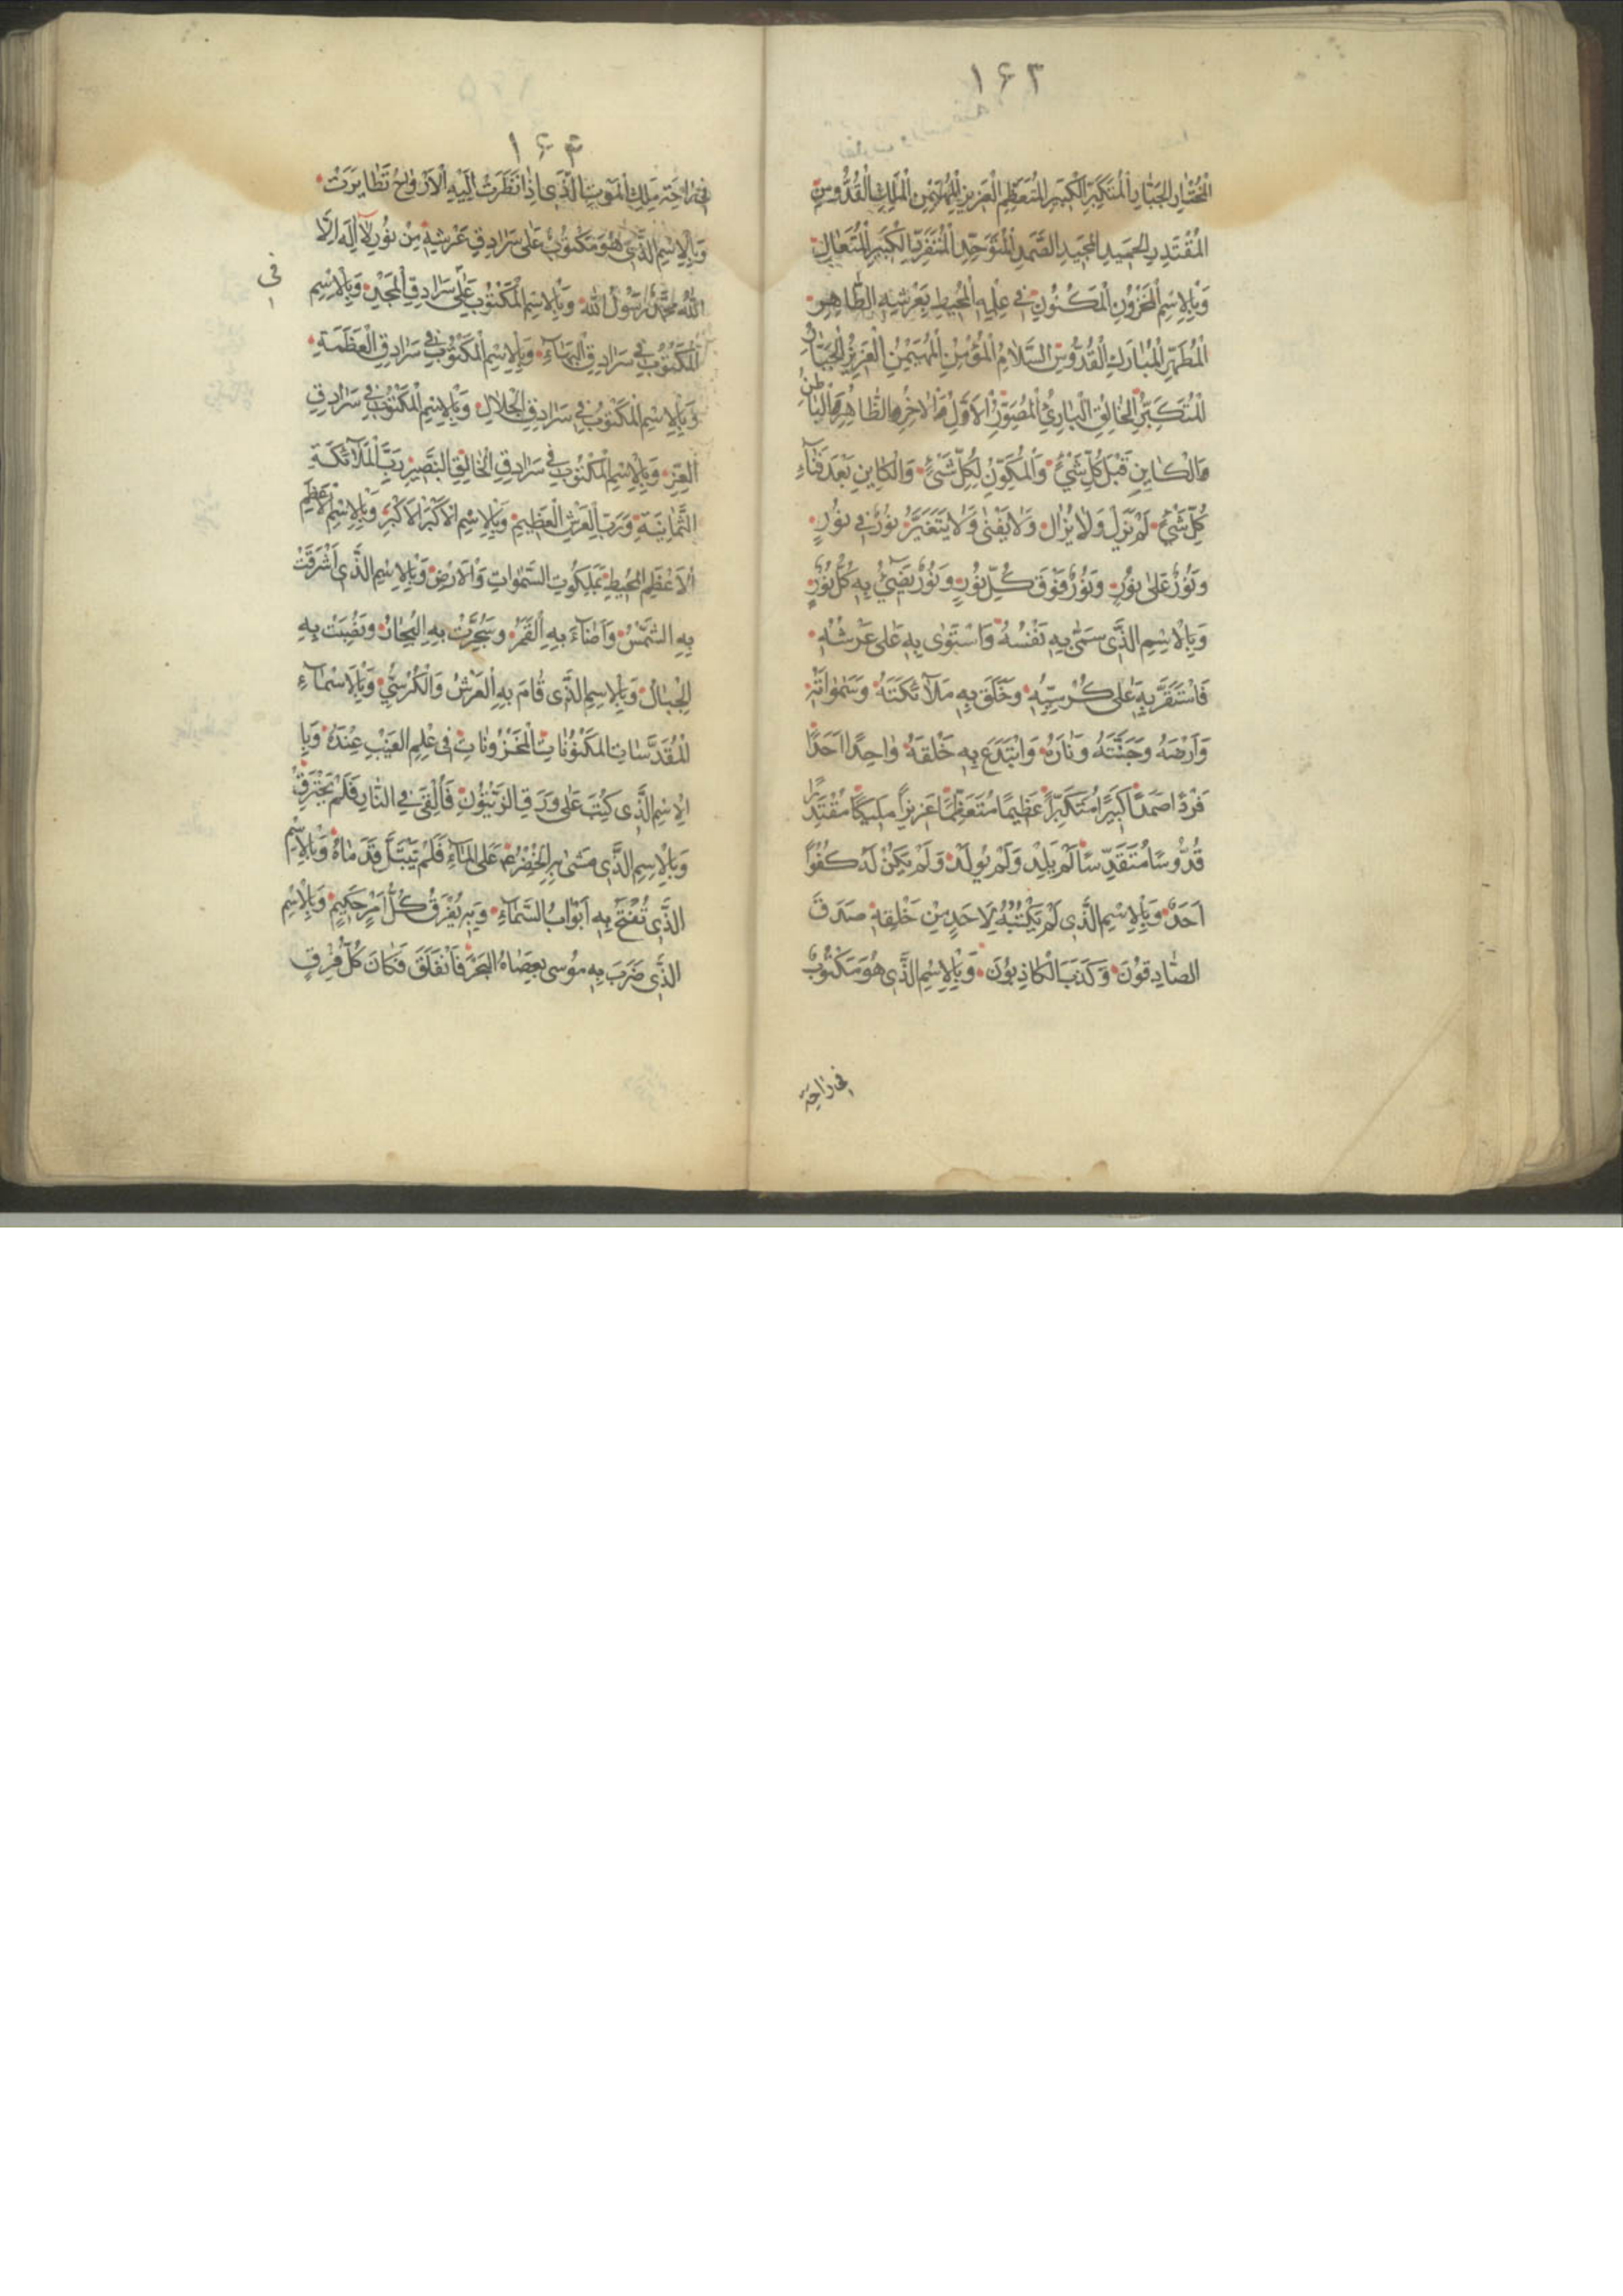 ۱۶۳
الْمُخْتٰارِ الْجَبّٰارِ الْمُتَكَبِّرِ الْكَبِيرِ الْمُتَعَظِّمِ الْعَزِيزِ الْمُهَيْمِنِ الْمَلِكِ الْقُدُّوسِ
الْمُقْتَدِرِ الْحَمِيدِ الْمَجِيدِ الصَّمَدِ الْمُتَوَحِّدِ الْمُتَفَرِّدِ الْكَبِيرِ الْمُتَعٰالِ
وَبِالْاِسْمِ الْمَخْزُونِ الْمَكْنُونِ فِي عِلْمِهِ الْمُحِيطِ بِعَرْشِهِ الطّٰاهِرِ
الْمُطَهَّرِ الْمُبٰارَكِ الْقُدُّوسِ السَّلٰامِ الْمُؤْمِنِ الْمُهَيْمِنِ الْعَزِيزِ الْجَبّٰارِ
الْمُتَكَبِّرِ الْخٰالِقِ الْبٰارِئِ الْمُصَوِّرِ الْاَوَّلِ وَالْاٰخِرِ وَالظّٰاهِرِ وَالْبٰاطِنِ
وَالْكٰايِنِ قَبْلَ كُلِّ شَيْءٍ وَالْمُكَوِّنِ لِكُلِّ شَيْءٍ وَالْكٰايِنِ بَعْدَ فَنٰآءِ
كُلِّ شَيْءٍ لَمْ يَزَلْ وَلٰا يَزٰالُ وَلٰا يَفْنٰى وَلٰا يَتَغَيَّرُ نُورٌ فِي نُورٍ
وَنُورٌ عَلٰى نُورٍ وَنُورٌ فَوْقَ كُلِّ نُورٍ وَنُورٌ يُضِيءُ بِهِ كُلُّ نُورٍ
وَبِالْاِسْمِ الَّذِي سَمّٰى بِهِ نَفْسَهُ وَاسْتَوٰى بِهِ عَلٰى عَرْشِهِ
فَاسْتَقَرَّ بِهِ عَلٰى كُرْسِيِّهِ وَخَلَقَ بِهِ مَلٰآئِكَتَهُ وَسَمٰوٰاتِهِ
وَاَرْضَهُ وَجَنَّتَهُ وَنٰارَهُ وَابْتَدَعَ بِهِ خَلْقَهُ وٰاحِدًا اَحَدًا
فَرْدًا صَمَدًا كَبِيرًا مُتَكَبِّرًا عَظِيمًا مُتَعَظِّمًا عَزِيزًا مَلِيكًا مُقْتَدِرًا
قُدُّوسًا مُتَقَدِّسًا لَمْ يَلِدْ وَلَمْ يُولَدْ وَلَمْ يَكُنْ لَهُ كُفُوًا
اَحَدٌ وَبِالْاِسْمِ الَّذِي لَمْ يَكْتُبْهُ لِاَحَدٍ مِنْ خَلْقِهِ صَدَقَ
الصّٰادِقُونَ وَكَذَبَ الْكٰاذِبُونَ وَبِالْاِسْمِ الَّذِي هُوَ مَكْتُوبٌ
فِي رٰاحَةِ
۱۶۴
فِي رٰاحَةِ مَلَكِ الْمَوْتِ الَّذِي اِذٰا نَظَرَتْ اِلَيْهِ الْاَرْوٰاحُ تَطٰايَرَتْ
وَبِالْاِسْمِ الَّذِي هُوَ مَكْتُوبٌ عَلٰى سَرٰادِقِ عَرْشِهِ مِنْ نُورٍ لٰا اِلٰهَ اِلَّا
اللّٰهُ مُحَمَّدٌ رَسُولُ اللّٰهِ وَبِالْاِسْمِ الْمَكْتُوبِ عَلٰى سَرٰادِقِ الْمَجْدِ وَبِالْاِسْمِ
فِي
الْمَكْتُوبِ فِي سَرٰادِقِ الْبَهٰآءِ وَبِالْاِسْمِ الْمَكْتُوبِ فِي سَرٰادِقِ الْعَظَمَةِ
وَبِالْاِسْمِ الْمَكْتُوبِ فِي سَرٰادِقِ الْجَلٰالِ وَبِالْاِسْمِ الْمَكْتُوبِ فِي سَرٰادِقِ
الْعِزِّ وَبِالْاِسْمِ الْمَكْتُوبِ فِي سَرٰادِقِ الْخٰالِقِ الْبَصِيرِ رَبِّ الْمَلٰآئِكَةِ
الثَّمٰانِيَةِ وَرَبِّ الْعَرْشِ الْعَظِيمِ وَبِالْاِسْمِ الْاَكْبَرِ الْاَكْبَرِ وَبِالْاِسْمِ الْاَعْظَمِ
الْاَعْظَمِ الْمُحِيطِ بِمَلَكُوتِ السَّمٰوٰاتِ وَالْاَرْضِ وَبِالْاِسْمِ الَّذِي اَشْرَقَتْ
بِهِ الشَّمْسُ وَاَضٰآءَ بِهِ الْقَمَرُ وَسُجِّرَتْ بِهِ الْبِحٰارُ وَنُصِبَتْ بِهِ
الْجِبٰالُ وَبِالْاِسْمِ الَّذِي قٰامَ بِهِ الْعَرْشُ وَالْكُرْسِيُّ وَبِالْاَسْمٰآءِ
الْمُقَدَّسٰاتِ الْمَكْنُونٰاتِ الْمَخْزُونٰاتِ فِي عِلْمِ الْغَيْبِ عِنْدَهُ وَبِا
لْاِسْمِ الَّذِي كُتِبَ عَلٰى وَرَقِ الزَّيْتُونِ فَاُلْقِيَ فِي النّٰارِ فَلَمْ يَحْتَرِقْ
وَبِالْاِسْمِ الَّذِي مَشٰى بِهِ الْخِضْرُ ع عَلَى الْمٰآءِ فَلَمْ تَبْتَلَّ قَدَمٰاهُ وَبِالْاِسْمِ
الَّذِي تُفْتَحُ بِهِ اَبْوٰابُ السَّمٰآءِ وَبِهِ يُفْرَقُ كُلُّ اَمْرٍ حَكِيمٍ وَبِالْاِسْمِ
الَّذِي ضَرَبَ بِهِ مُوسٰى بِعَصٰاهُ الْبَحْرَ فَانْفَلَقَ فَكٰانَ كُلُّ فِرْقٍ